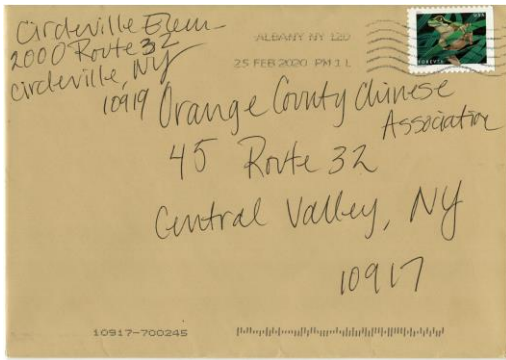 Circleville Elem
2000 Route 32
Circleville, NY
10919
ALBANY NY 120
25 FEB 2020 PM 1 L
FOREVER
USA
Orange County Chinese
Association
45 Route 32
Central Valley, NY
10917
10917-700245